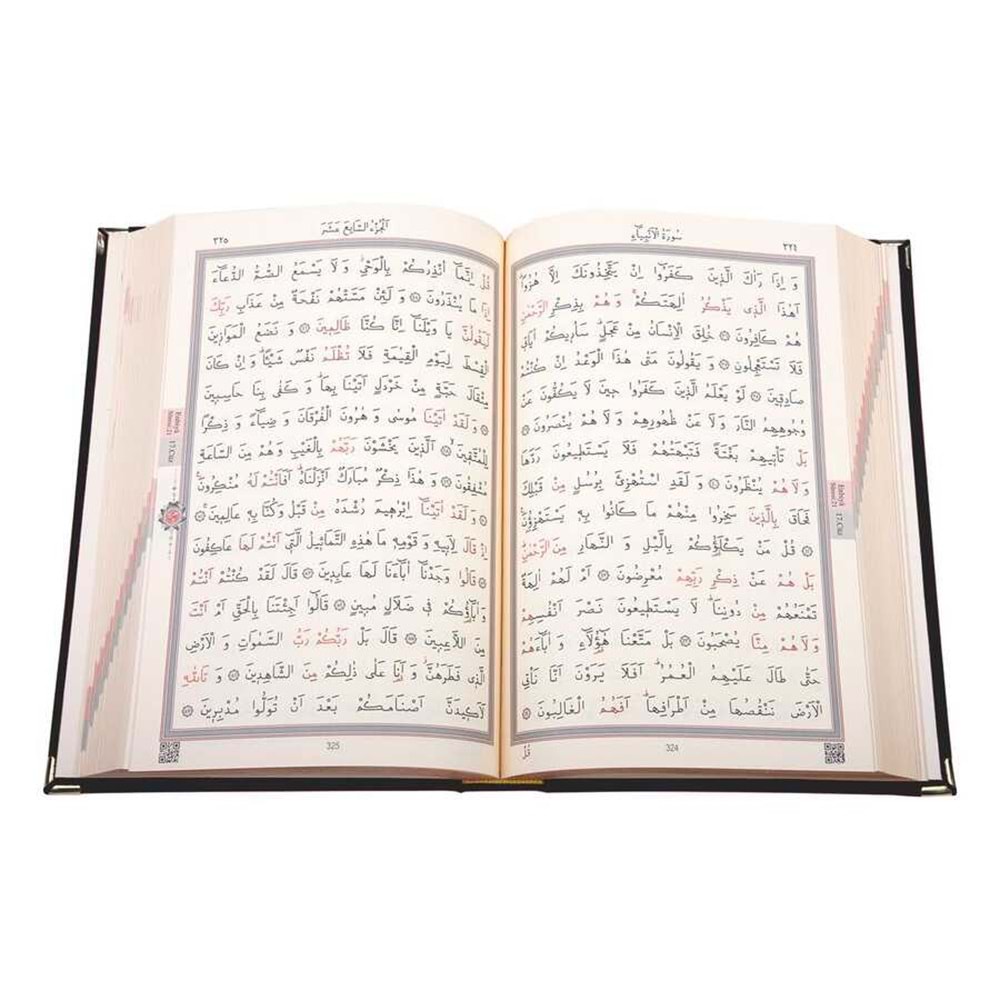 سورة الأنبياء
٣٢٤
وَ اِذَا رَاٰكَ الَّذ۪ينَ كَفَرُٓوا اِنْ يَتَّخِذُونَكَ اِلَّا هُزُوًاۜ
اَهٰذَا الَّذ۪ي يَذْكُرُ اٰلِهَتَكُمْۚ وَ هُمْ بِذِكْرِ الرَّحْمٰنِ
هُمْ كَافِرُونَ ﴿٣٦﴾ خُلِقَ الْاِنْسَانُ مِنْ عَجَلٍۜ سَاُر۪يكُمْ اٰيَات۪ي
فَلَا تَسْتَعْجِلُونِ ﴿٣٧﴾ وَ يَقُولُونَ مَتٰى هٰذَا الْوَعْدُ اِنْ كُنْتُمْ
صَادِق۪ينَ ﴿٣٨﴾ لَوْ يَعْلَمُ الَّذ۪ينَ كَفَرُوا ح۪ينَ لَا يَكُفُّونَ عَنْ
وُجُوهِهِمُ النَّارَ وَ لَا عَنْ ظُهُورِهِمْ وَ لَا هُمْ يُنْصَرُونَ ﴿٣٩﴾
بَلْ تَأْت۪يهِمْ بَغْتَةً فَتَبْهَتُهُمْ فَلَا يَسْتَط۪يعُونَ رَدَّهَا
وَ لَا هُمْ يُنْظَرُونَ ﴿٤٠﴾ وَ لَقَدِ اسْتُهْزِئَ بِرُسُلٍ مِنْ قَبْلِكَ
فَحَاقَ بِالَّذ۪ينَ سَخِرُوا مِنْهُمْ مَا كَانُوا بِه۪ يَسْتَهْزِؤُ۫نَ۟
﴿٤١﴾ قُلْ مَنْ يَكْلَؤُ۬كُمْ بِالَّيْلِ وَ النَّهَارِ مِنَ الرَّحْمٰنِۜ
بَلْ هُمْ عَنْ ذِكْرِ رَبِّهِمْ مُعْرِضُونَ ﴿٤٢﴾ اَمْ لَهُمْ اٰلِهَةٌ
تَمْنَعُهُمْ مِنْ دُونِنَاۜ لَا يَسْتَط۪يعُونَ نَصْرَ اَنْفُسِهِمْ
وَ لَا هُمْ مِنَّا يُصْحَبُونَ ﴿٤٣﴾ بَلْ مَتَّعْنَا هٰٓؤُ۬لَٓاءِ وَ اٰبَٓاءَهُمْ
حَتّٰى طَالَ عَلَيْهِمُ الْعُمُرُۜ اَفَلَا يَرَوْنَ اَنَّا نَأْتِي
الْاَرْضَ نَنْقُصُهَا مِنْ اَطْرَافِهَاۜ اَفَهُمُ الْغَالِبُونَ ﴿٤٤﴾
قُلْ
324
Enbiyâ Sûresi 21
17.Cüz
اَلْجُزْءُ السَّابِعَ عَشَرَ
٣٢٥
قُلْ اِنَّمَٓا اُنْذِرُكُمْ بِالْوَحْيِۘ وَ لَا يَسْمَعُ الصُّمُّ الدُّعَٓاءَ
اِذَا مَا يُنْذَرُونَ ﴿٤٥﴾ وَ لَئِنْ مَسَّتْهُمْ نَفْحَةٌ مِنْ عَذَابِ رَبِّكَ
لَيَقُولُنَّ يَا وَيْلَنَٓا اِنَّا كُنَّا ظَالِم۪ينَ ﴿٤٦﴾ وَ نَضَعُ الْمَوَاز۪ينَ
الْقِسْطَ لِيَوْمِ الْقِيٰمَةِ فَلَا تُظْلَمُ نَفْسٌ شَيْـًٔاۜ وَ اِنْ كَانَ
مِثْقَالَ حَبَّةٍ مِنْ خَرْدَلٍ اَتَيْنَا بِهَاۜ وَ كَفٰى بِنَا حَاسِب۪ينَ
﴿٤٧﴾ وَ لَقَدْ اٰتَيْنَا مُوسٰى وَ هٰرُونَ الْفُرْقَانَ وَ ضِيَٓاءً وَ ذِكْرًا
لِلْمُتَّق۪ينَۙ ﴿٤٨﴾ اَلَّذ۪ينَ يَخْشَوْنَ رَبَّهُمْ بِالْغَيْبِ وَ هُمْ مِنَ السَّاعَةِ
مُشْفِقُونَ ﴿٤٩﴾ وَ هٰذَا ذِكْرٌ مُبَارَكٌ اَنْزَلْنَاهُۜ اَفَاَنْتُمْ لَهُ مُنْكِرُونَ۟
﴿٥٠﴾ وَ لَقَدْ اٰتَيْنَٓا اِبْرٰه۪يمَ رُشْدَهُ مِنْ قَبْلُ وَ كُنَّا بِه۪ عَالِم۪ينَۚ ﴿٥١﴾
اِذْ قَالَ لِاَب۪يهِ وَ قَوْمِه۪ مَا هٰذِهِ التَّمَاث۪يلُ الَّت۪ٓي اَنْتُمْ لَهَا عَاكِفُونَ
﴿٥٢﴾ قَالُوا وَجَدْنَٓا اٰبَٓاءَنَا لَهَا عَابِد۪ينَ ﴿٥٣﴾ قَالَ لَقَدْ كُنْتُمْ اَنْتُمْ
وَ اٰبَٓاؤُ۬كُمْ ف۪ي ضَلَالٍ مُب۪ينٍ ﴿٥٤﴾ قَالُٓوا اَجِئْتَنَا بِالْحَقِّ اَمْ اَنْتَ
مِنَ اللَّاعِب۪ينَ ﴿٥٥﴾ قَالَ بَلْ رَبُّكُمْ رَبُّ السَّمٰوَاتِ وَ الْاَرْضِ
الَّذ۪ي فَطَرَهُنَّۘ وَ اَنَا۬ عَلٰى ذٰلِكُمْ مِنَ الشَّاهِد۪ينَ ﴿٥٦﴾ وَ تَاللّٰهِ
لَاَك۪يدَنَّ اَصْنَامَكُمْ بَعْدَ اَنْ تُوَلُّوا مُدْبِر۪ينَ ﴿٥٧﴾
325
Enbiyâ Sûresi 21
17.Cüz